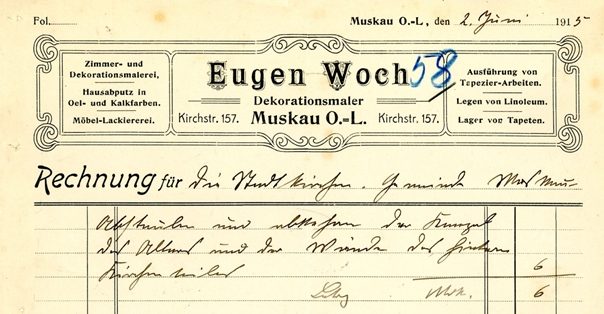 Fol. Muskau O.-L., den 2. Juni 1915
Zimmer- und
Dekorationsmalerei,
Hausabputz in
Oel- und Kalkfarben.
Möbel-Lackiererei.
Eugen Woch 58
Dekorationsmaler
Kirchstr. 157. Muskau O.-L. Kirchstr. 157.
Ausführung von
Tapezier-Arbeiten.
Legen von Linoleum.
Lager von Tapeten.
Rechnung für die Stadtkirchen. Gemeinde Muskau
Abstauben und abkehren der Kanzel
des Altars und der Wände des hintern
Kirchenteiles 6
Mk. 6